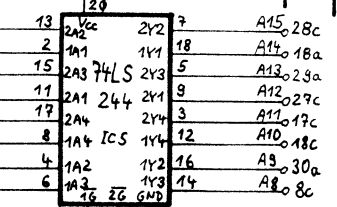 20
Vcc
13 2A2 2Y2 7 A15 28c
2 1A1 1Y1 18 A14 18a
15 2A3 74LS 2Y3 5 A13 29a
11 2A1 244 2Y1 9 A12 27c
17 2A4 2Y4 3 A11 17c
8 1A4 IC5 1Y4 12 A10 18c
4 1A2 1Y2 16 A9 30a
6 1A3 1Y3 14 A8 8c
1G 2G GND